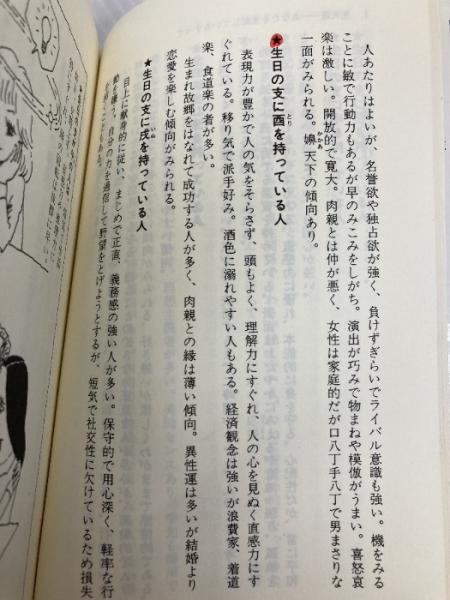 人あたりはよいが、名誉欲や独占欲が強く、負けずぎらいでライバル意識も強い。機をみる
ことに敏で行動力もあるが早のみこみをしがち。演出が巧みで物まねや模倣がうまい。喜怒哀
楽は激しい。開放的で寛大。肉親とは仲が悪く、女性は家庭的だが口八丁手八丁で男まさりな
一面がみられる。嬶天下の傾向あり。
★生日の支に酉を持っている人
表現力が豊かで人の気をそらさず、頭もよく、理解力にすぐれ、人の心を見ぬく直感力にす
ぐれている。移り気で派手好み。酒色に溺れやすい人もある。経済観念は強いが浪費家、着道
楽、食道楽の者が多い。
生まれ故郷をはなれて成功する人が多く、肉親との縁は薄い傾向。異性運は多いが結婚より
恋愛を楽しむ傾向がみられる。
★生日の支に戌を持っている人
目上に献身的に従い、まじめで正直、義務感の強い人が多い。保守的で用心深く、軽率な行
動を嫌う。自分の力を過信して野望をとげようとするが、短気で社交性に欠けているため損失